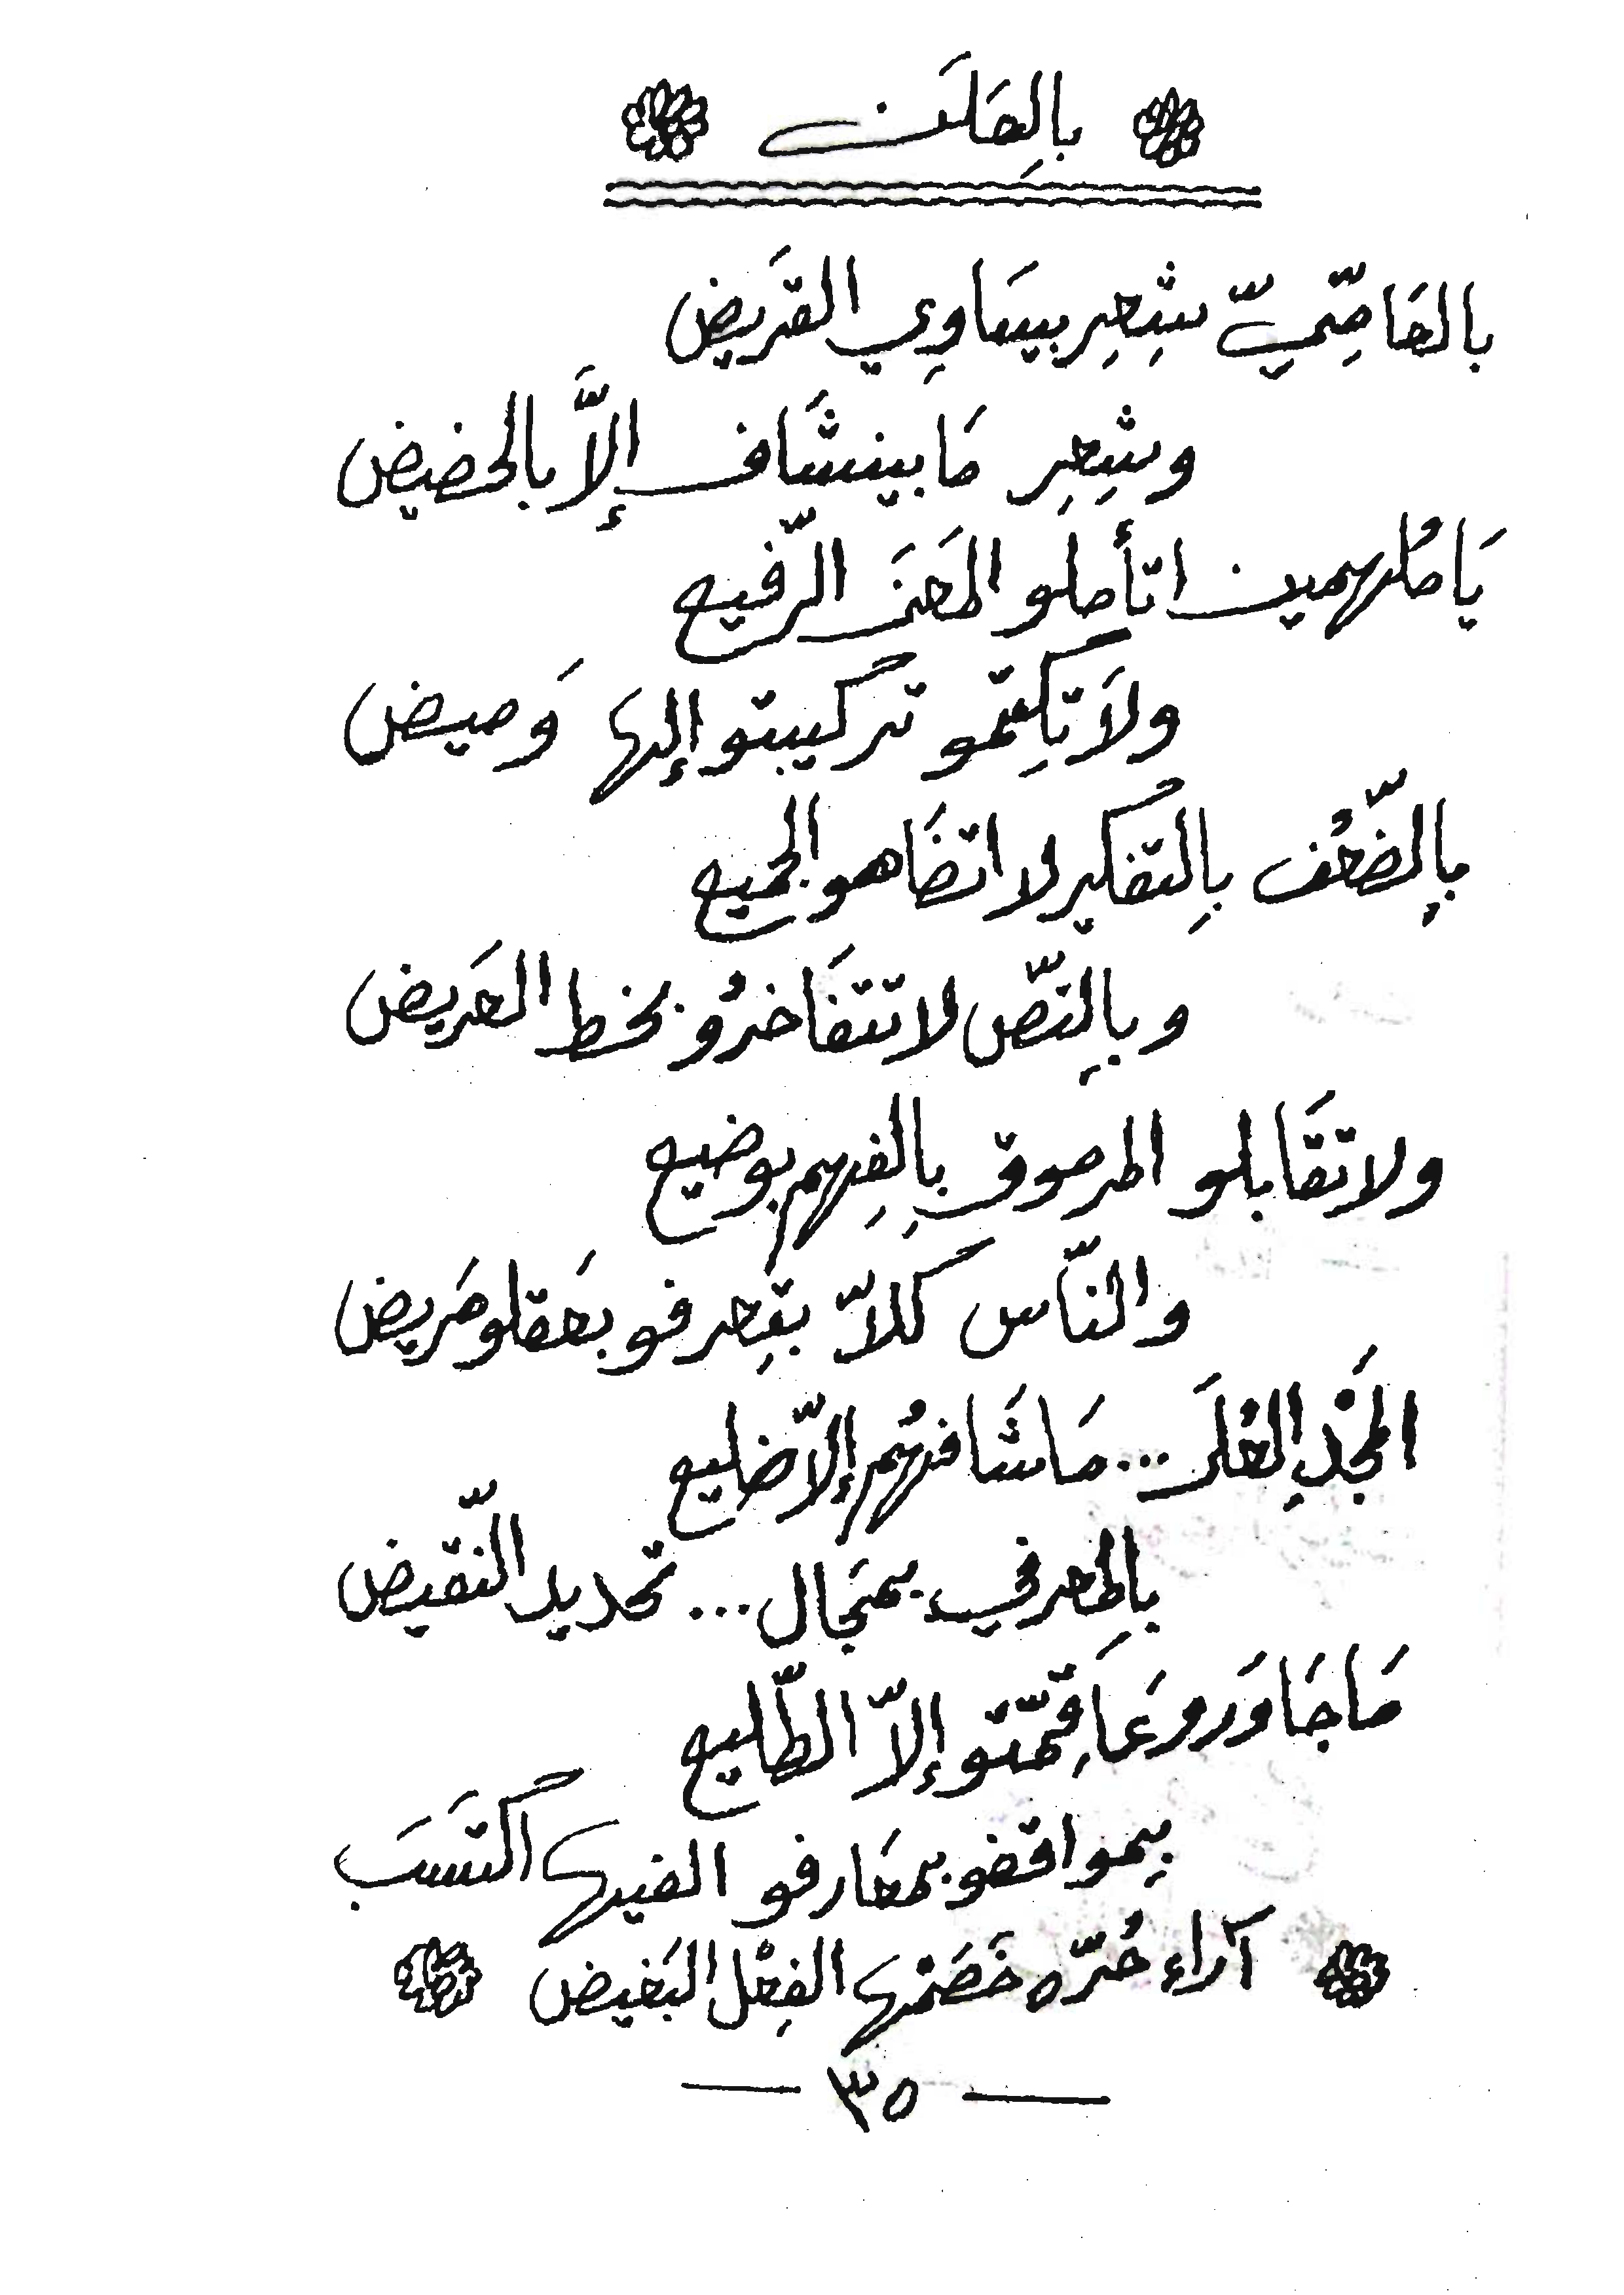 بالِعَلَن
بالعَامِّيّ شِعِر بيسَاوِي القَريض
وشِعِر مَا بينشَاف إلاَّ بالحضيض
يَا مُلهمين اتأملو المَعنَى الرّفيع
ولاَ تكِتمّو تركيبتو إلها وَميض
بِالضّعْف بِالتفكير لا اتضَاهو الجميع
وبِالنّص لا تتفَاخرُو بخط العَريض
ولا تقَابلو المرموق بِالفِهم بوضيع
والنّاس كلاّ بتِعرفو بعَقلو مَريض
المجْدِ العُلَى ... مَا شَافهُم إلاّ ضليع
بالمعرفي بمجَال ... تحديد النّقيض
مَا جَاوَرو عَا قِمّتو إلاّ الطّليع
بِمواقفو بمعَارفو الفيها اكتسَب
آراء حُرّه خَصَمْها الفِعْل البَغيض
٣٥